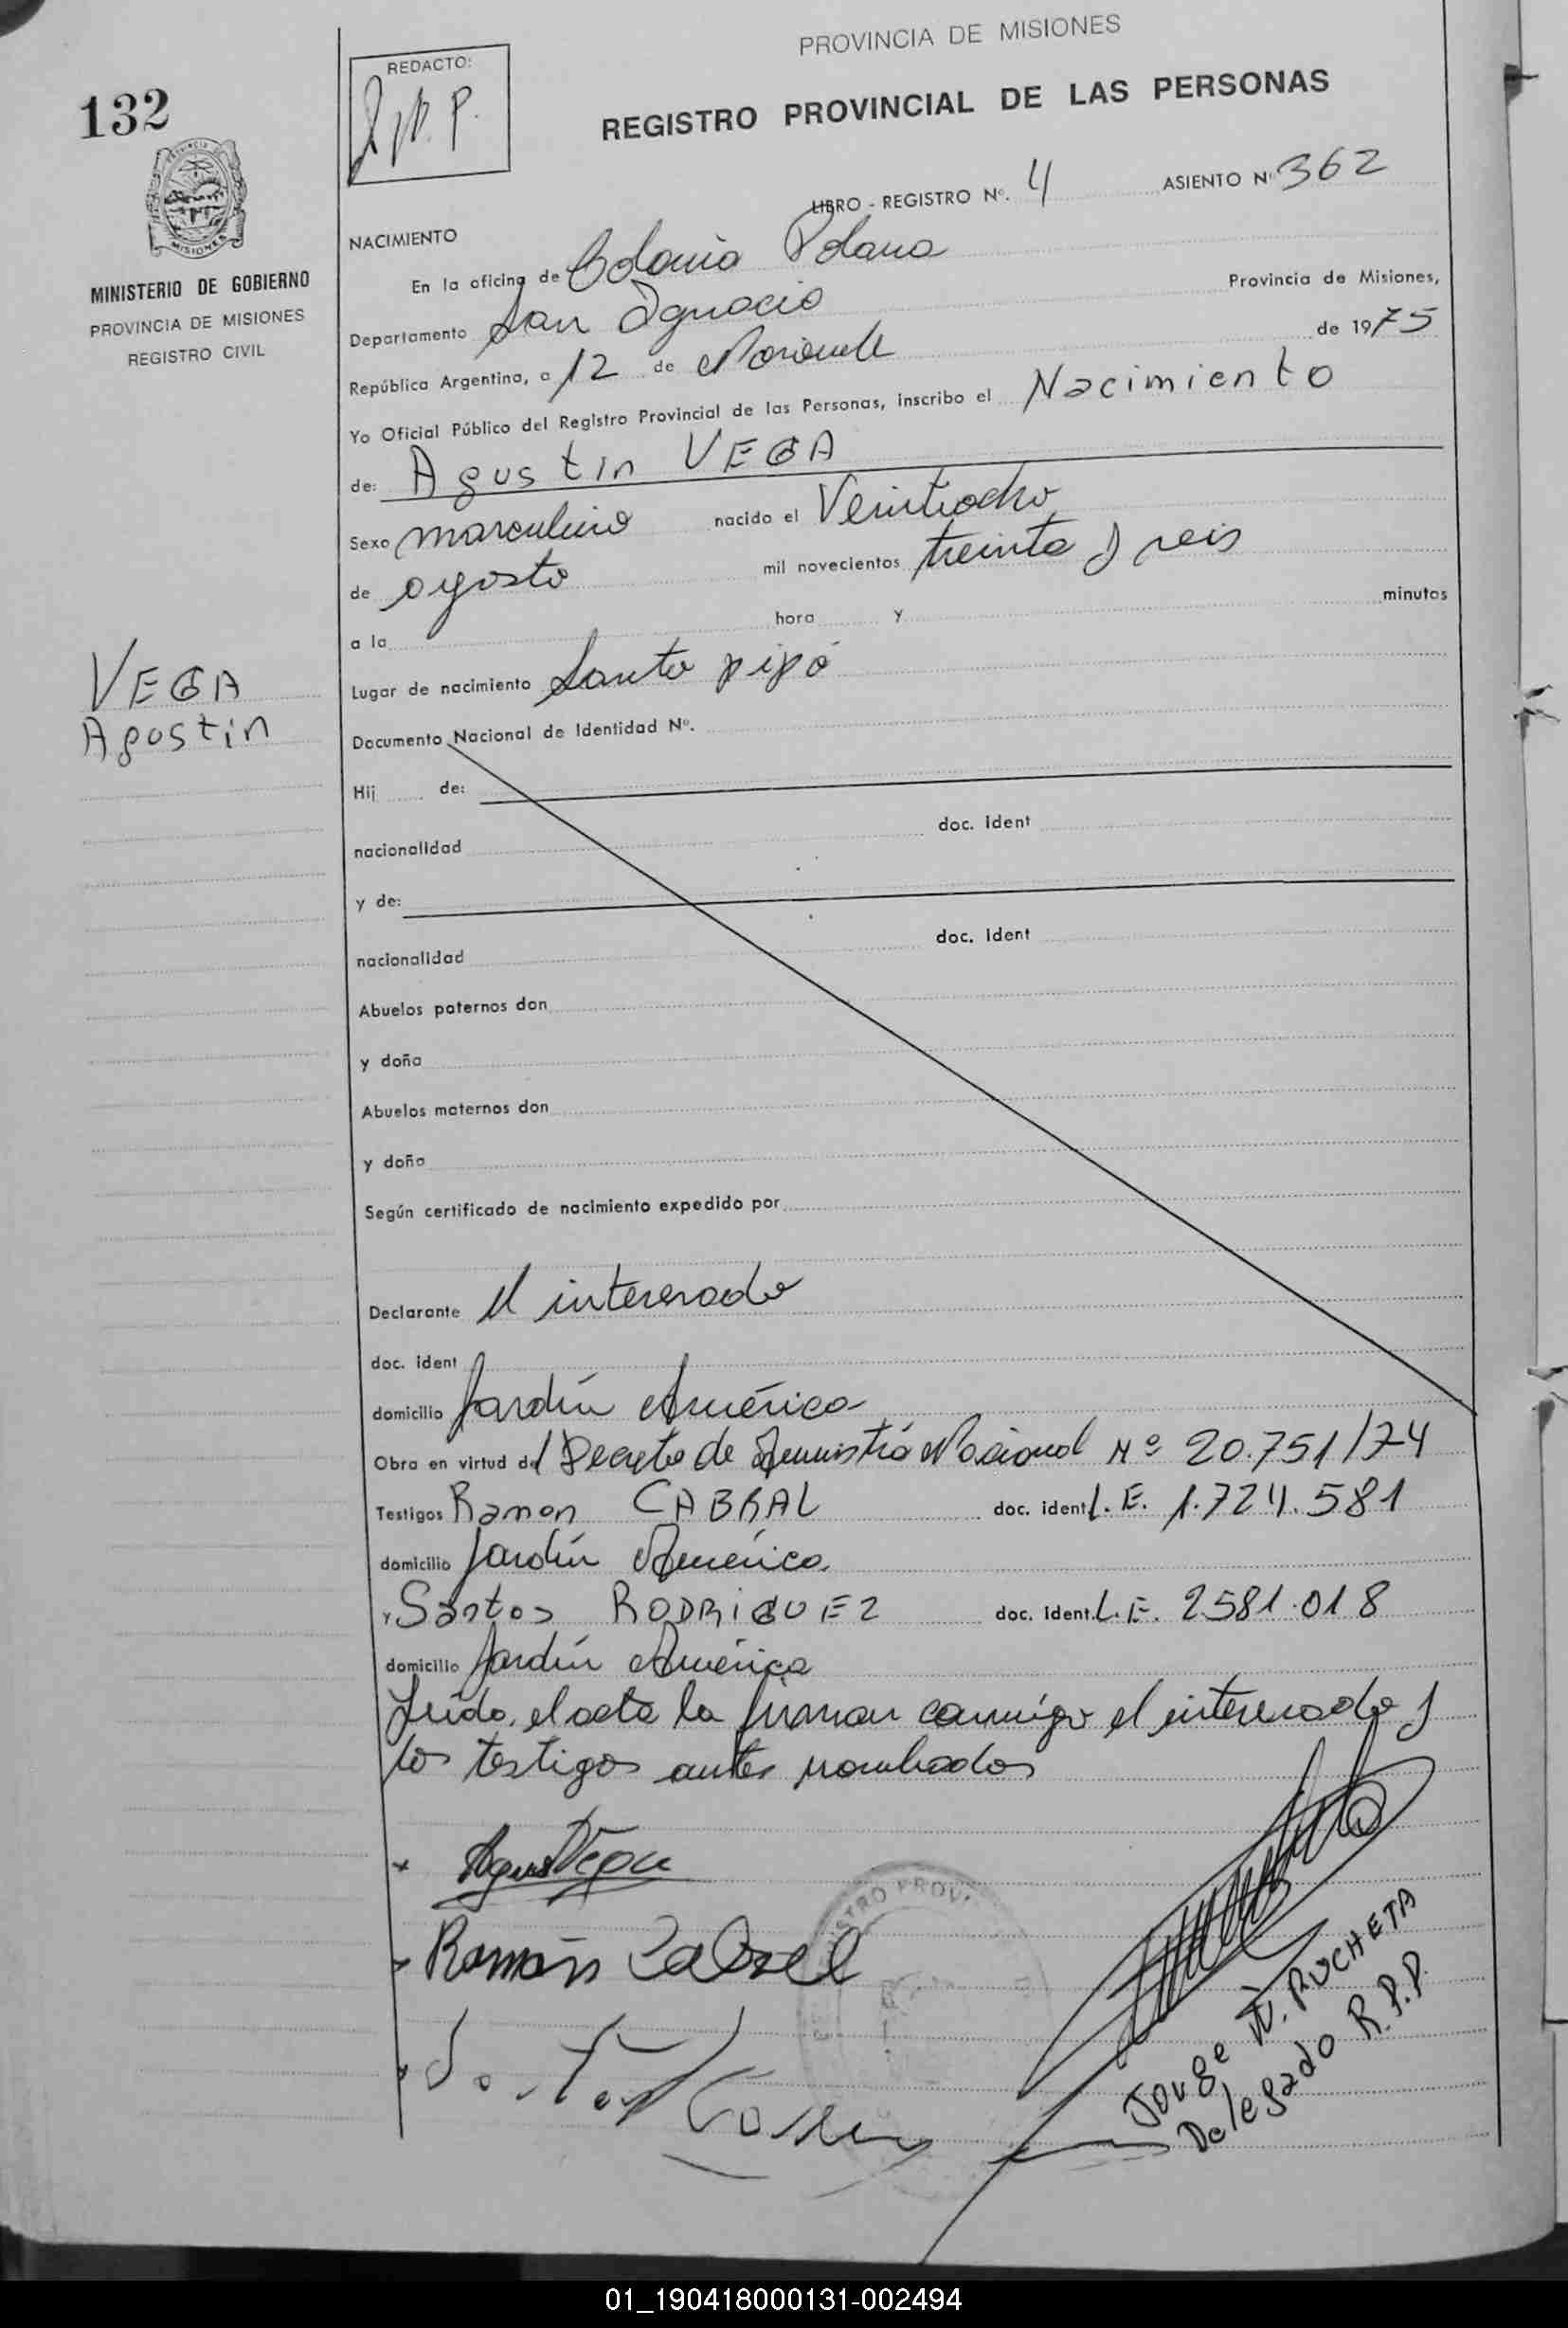 132
REDACTO:
PROVINCIA DE MISIONES
REGISTRO PROVINCIAL DE LAS PERSONAS
LIBRO - REGISTRO Nº. 4 ASIENTO Nº 362
MISIONES
MINISTERIO DE GOBIERNO
PROVINCIA DE MISIONES
REGISTRO CIVIL
NACIMIENTO
En la oficina de Colonia Polana
Provincia de Misiones,
Departamento San Ignacio
República Argentina, a 12 de Noviembre de 1975
Yo Oficial Público del Registro Provincial de las Personas, inscribo el Nacimiento
de: Agustin VEGA
Sexo masculino nacido el Veintiocho
de agosto mil novecientos treinta y seis
a la hora y minutos
VEGA
Agostin
Lugar de nacimiento Santo pipó
Documento Nacional de Identidad Nº.
Hij de:
nacionalidad doc. ident
y de:
nacionalidad doc. ident
Abuelos paternos don
y doña
Abuelos maternos don
y doña
Según certificado de nacimiento expedido por
Declarante el interesado
doc. ident
domicilio Jardín América
Obra en virtud del Decreto de Amnistía Nacional Nº 20.751/74
Testigos Ramon CABRAL doc. ident L.E. 1.724.581
domicilio Jardín América
y Santos RODRIGUEZ doc. ident. L.E. 2581.018
domicilio Jardín América
Leída, el acta la firman conmigo el interesado y
los testigos antes nombrados
Ramón Cabral
Jorge W. ROCHETA
Delegado R.P.P.
01_190418000131-002494